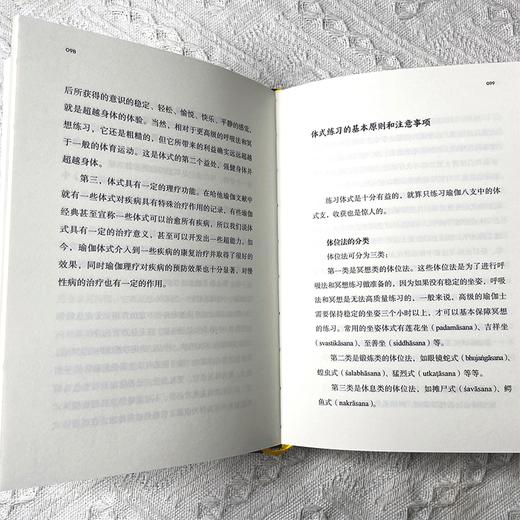 098
后所获得的意识的稳定、轻松、愉悦、快乐、平静的感觉,
就是超越身体的体验。当然,相对于更高级的呼吸法和冥
想练习,它还是粗糙的,但它所带来的利益确实远远超越
于一般的体育运动。这是体式的第二个益处,强健身体并
超越身体。
第三,体式具有一定的理疗功能。在哈他瑜伽文献中
就有一些体式对疾病具有特殊治疗作用的记录,有些瑜伽
经典甚至宣称一些体式可以治愈所有疾病,所以我们说体
式具有一定的治疗意义,甚至可以开发出一些超能力。如
今,瑜伽体式介入到一些疾病的康复治疗并取得了很好的
效果,同时瑜伽理疗对疾病的预防效果也十分显著,对慢
性病的治疗也有一定的作用。
099
体式练习的基本原则和注意事项
练习体式是十分有益的,就算只练习瑜伽八支中的体
式支,收获也是惊人的。
体位法的分类
体位法可分为三类:
第一类是冥想类的体位法。这些体位法是为了进行呼
吸法和冥想练习做准备的,因为如果没有稳定的坐姿,呼
吸法和冥想是无法高质量练习的,一般来说,高级的瑜伽士
需要保持稳定的坐姿三个小时以上,才可以基本保障冥想
的练习。常用的坐姿体式有莲花坐(padamāsana)、吉祥坐
(svastikāsana)、至善坐(siddhāsana)等。
第二类是锻炼类的体位法,如眼镜蛇式(bhujaṅgāsana)、
蝗虫式(śalabhāsana)、猛烈式(utkaṭāsana)等等。
第三类是休息类的体位法,如摊尸式(śavāsana)、鳄
鱼式(nakrāsana)。